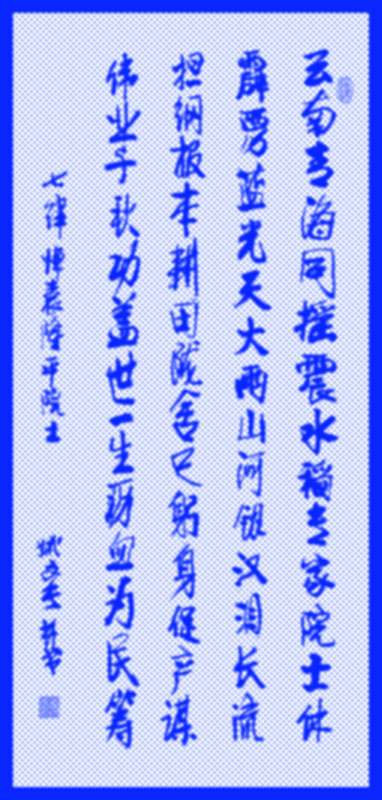 云南青海同摇震水稻专家院士休
霹雳蓝光天大雨山河银汉泪长流
担纲报本耕田陇舍己躬身促产谋
伟业千秋功盖世一生沥血为民筹
七律 悼袁隆平院士
并书